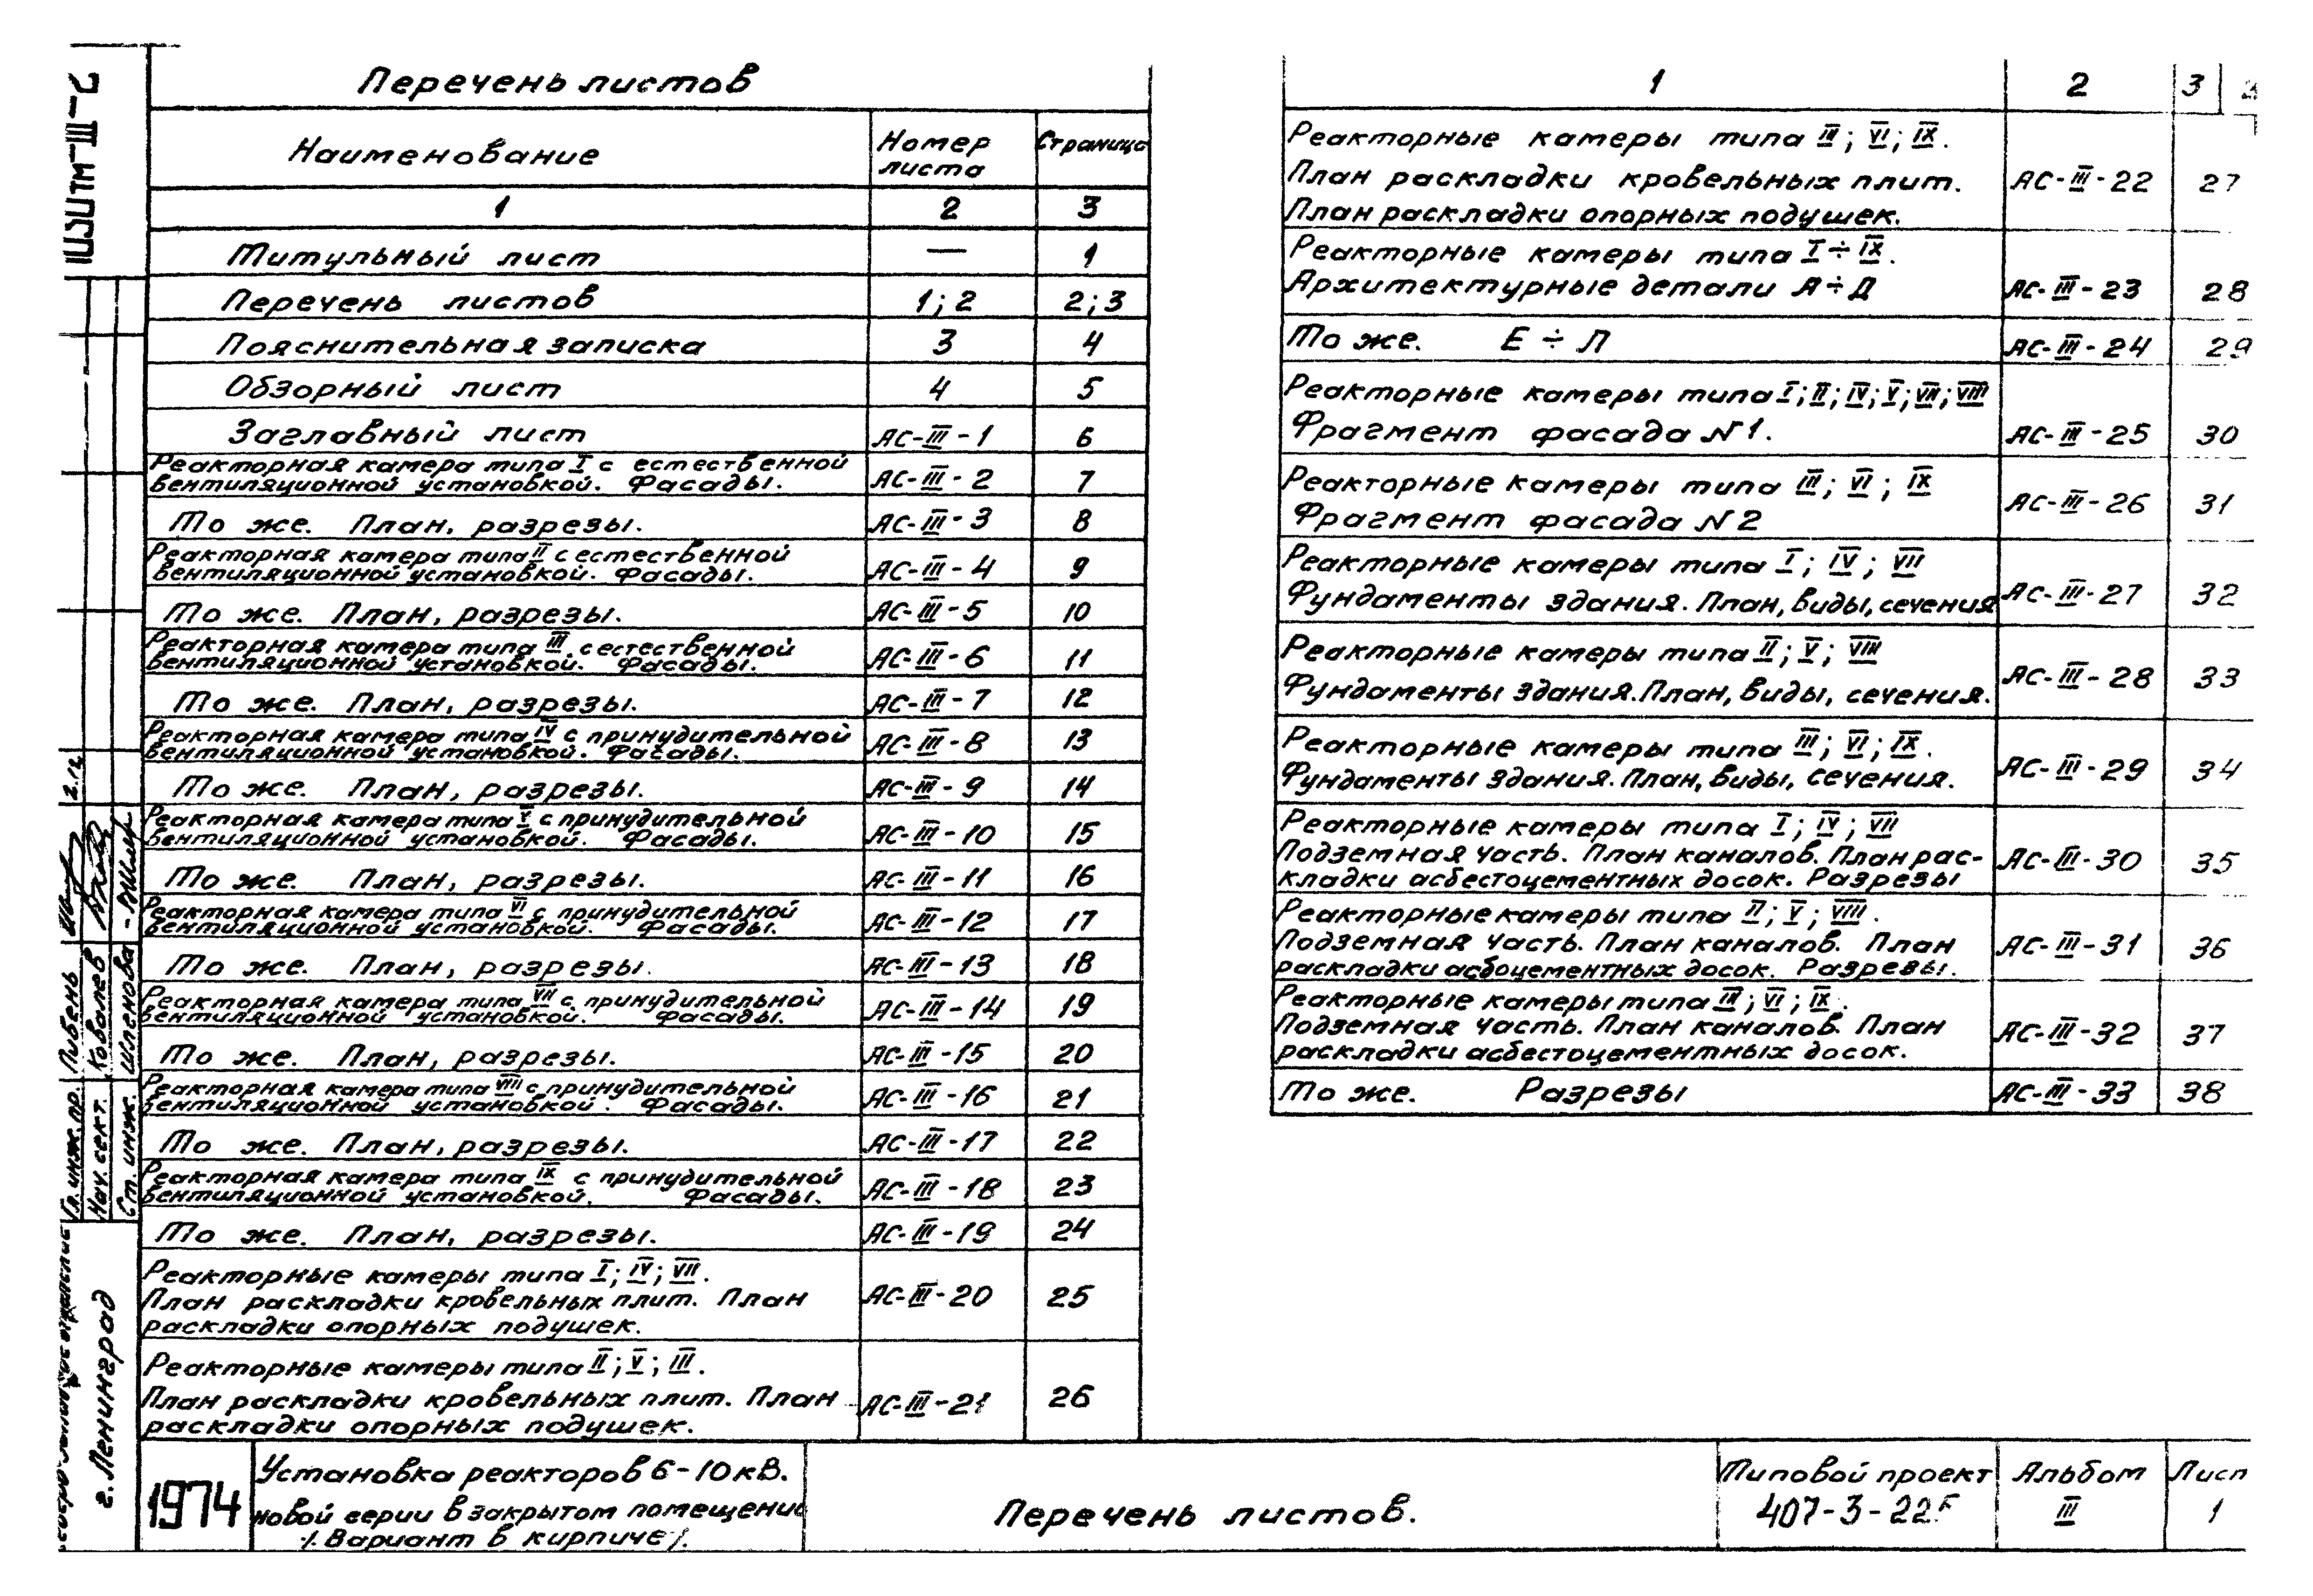 Перечень листов
Наименование
Номер листа
Страница
1 2 3
Титульный лист — 1
Перечень листов 1; 2 2; 3
Пояснительная записка 3 4
Обзорный лист 4 5
Заглавный лист АС-III-1 6
Реакторная камера типа I с естественной
вентиляционной установкой. Фасады. АС-III-2 7
То же. План, разрезы. АС-III-3 8
Реакторная камера типа II с естественной
вентиляционной установкой. Фасады. АС-III-4 9
То же. План, разрезы. АС-III-5 10
Реакторная камера типа III с естественной
вентиляционной установкой. Фасады. АС-III-6 11
То же. План, разрезы. АС-III-7 12
Реакторная камера типа IV с принудительной
вентиляционной установкой. Фасады. АС-III-8 13
То же. План, разрезы. АС-III-9 14
Реакторная камера типа V с принудительной
вентиляционной установкой. Фасады. АС-III-10 15
То же. План, разрезы. АС-III-11 16
Реакторная камера типа VI с принудительной
вентиляционной установкой. Фасады. АС-III-12 17
То же. План, разрезы. АС-III-13 18
Реакторная камера типа VII с принудительной
вентиляционной установкой. Фасады. АС-III-14 19
То же. План, разрезы. АС-III-15 20
Реакторная камера типа VIII с принудительной
вентиляционной установкой. Фасады. АС-III-16 21
То же. План, разрезы. АС-III-17 22
Реакторная камера типа IX с принудительной
вентиляционной установкой. Фасады. АС-III-18 23
То же. План, разрезы. АС-III-19 24
Реакторные камеры типа I; IV; VII.
План раскладки кровельных плит. План АС-III-20 25
раскладки опорных подушек.
Реакторные камеры типа II; V; III.
План раскладки кровельных плит. План АС-III-21 26
раскладки опорных подушек.
1 2 3
Реакторные камеры типа III; VI; IX.
План раскладки кровельных плит. АС-III-22 27
План раскладки опорных подушек.
Реакторные камеры типа I ÷ IX.
Архитектурные детали А ÷ Д АС-III-23 28
То же. Е ÷ Л АС-III-24 29
Реакторные камеры типа I; II; IV; V; VII; VIII
Фрагмент фасада N1. АС-III-25 30
Реакторные камеры типа III; VI; IX
Фрагмент фасада N2 АС-III-26 31
Реакторные камеры типа I; IV; VII
Фундаменты здания. План, виды, сечения АС-III-27 32
Реакторные камеры типа II; V; VIII
Фундаменты здания. План, виды, сечения. АС-III-28 33
Реакторные камеры типа III; VI; IX.
Фундаменты здания. План, виды, сечения. АС-III-29 34
Реакторные камеры типа I; IV; VII
Подземная часть. План каналов. План рас-
кладки асбестоцементных досок. Разрезы АС-III-30 35
Реакторные камеры типа II; V; VIII.
Подземная часть. План каналов. План АС-III-31 36
раскладки асбоцементных досок. Разрезы.
Реакторные камеры типа III; VI; IX.
Подземная часть. План каналов. План АС-III-32 37
раскладки асбестоцементных досок.
То же. Разрезы АС-III-33 38
Гл. инж. пр. Пивень
Нач. сект. Ковалев
Ст. инж. Шленова
г. Ленинград
1974
Установка реакторов 6-10кВ.
новой серии в закрытом помещении
/. Вариант в кирпиче /.
Перечень листов.
Типовой проект
407-3-22
Альбом
III
Лист
1